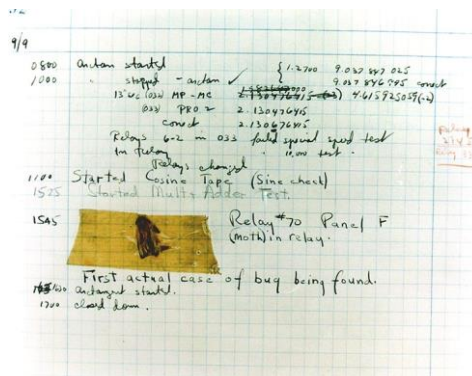 9/9
0800 Antan started { 1.2700 9.037 847 025
1000 " stopped - antan ✓ 9.037 846 995 correct
13"uc (032) MP - MC 4.615925059(-2)
(033) PRO 2 2.130476415
correct 2.130676415
Relays 6-2 in 033 failed special speed test
In Relay " 10.000 test.
Relays changed
1100 Started Cosine Tape (Sine check)
1525 Started Mult+ Adder Test.
1545 Relay #70 Panel F
(moth) in relay.
First actual case of bug being found.
antangent started.
1700 closed down.